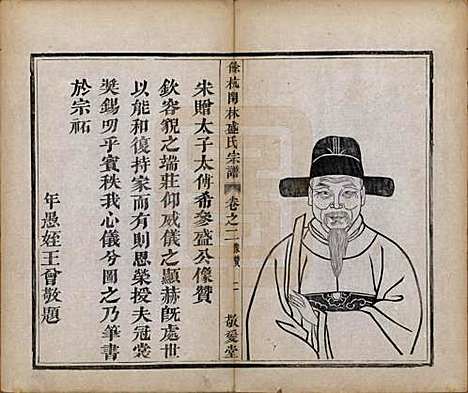 餘杭閑林盛氏宗譜
卷之二
像贊
一
敬愛堂
宋贈太子太傅希參盛公像贊
欽容貌之端莊仰威儀之顯赫既處世
以能和復持家而有則恩榮授夫冠裳
奬錫叨乎賓秩我心儀兮圖之乃筆書
於宗祏
年愚姪王會敬題